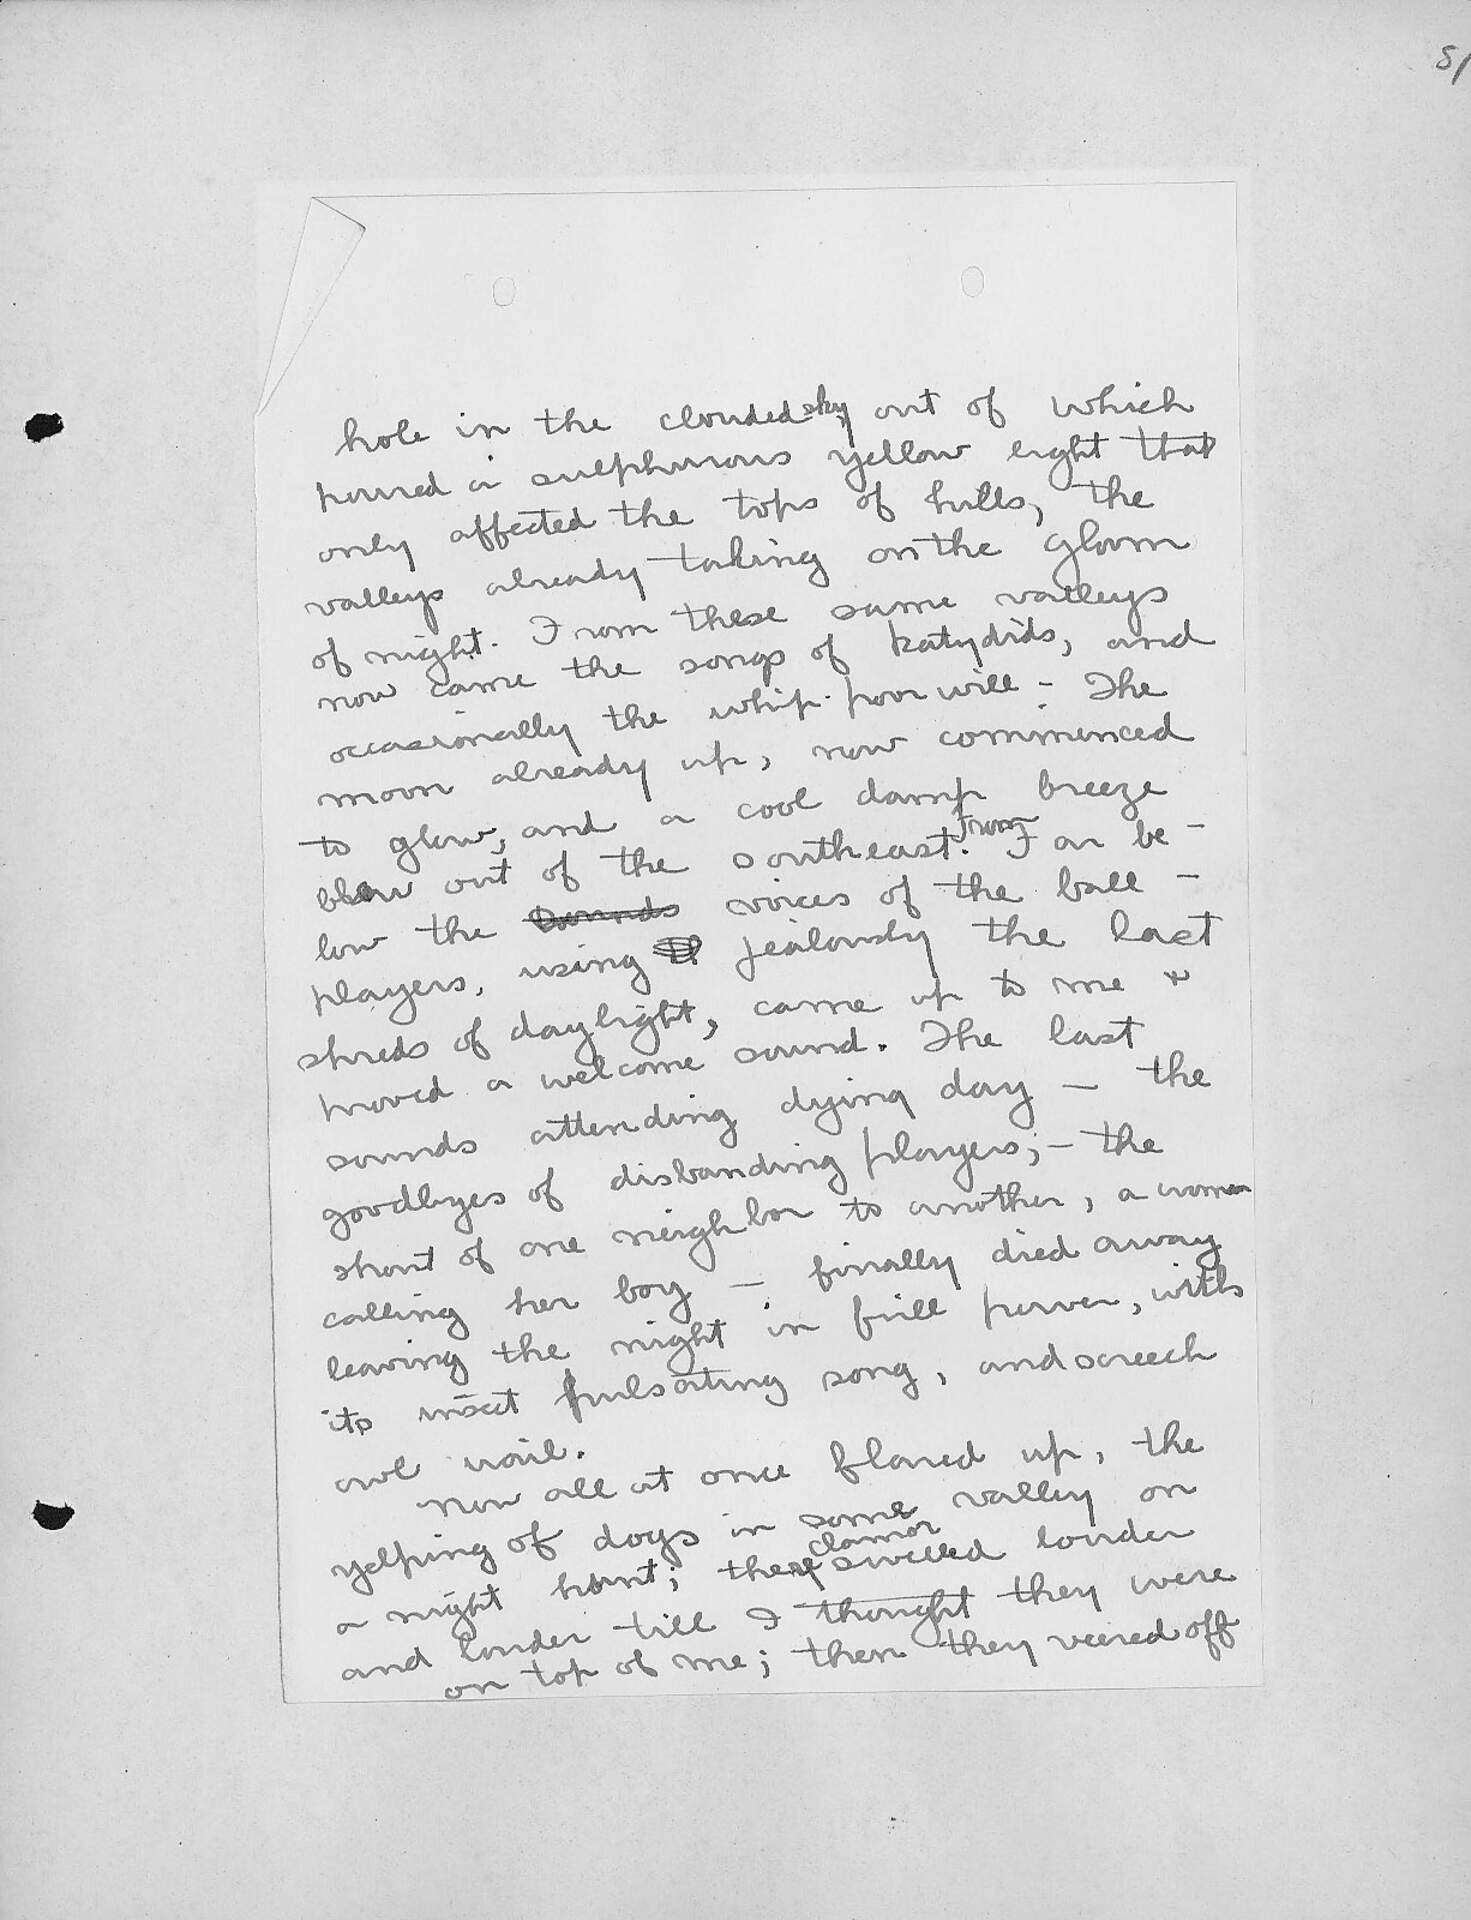 51
hole in the clouded sky, out of which
poured a sulphurous yellow light that
only affected the tops of hills, the
valleys already taking on the gloom
of night. From these same valleys
now came the songs of katydids, and
occasionally the whip-poor will - The
moon already up, now commenced
to glow, and a cool damp breeze
blew out of the southeast. From Far be-
low the sounds voices of the ball-
players, using jealously the last
shreds of daylight, came up to me &
proved a welcome sound. The last
sounds attending dying day - the
goodbyes of disbanding players; - the
shout of one neighbor to another, a woman
calling her boy - finally died away
leaving the night in full power, with
its insect pulsating song, and screech
owl wail.
Now all at once flared up, the
yelping of dogs in some valley on
a night hunt; the clamor swelled louder
and louder till I thought they were
on top of me; then they veered off